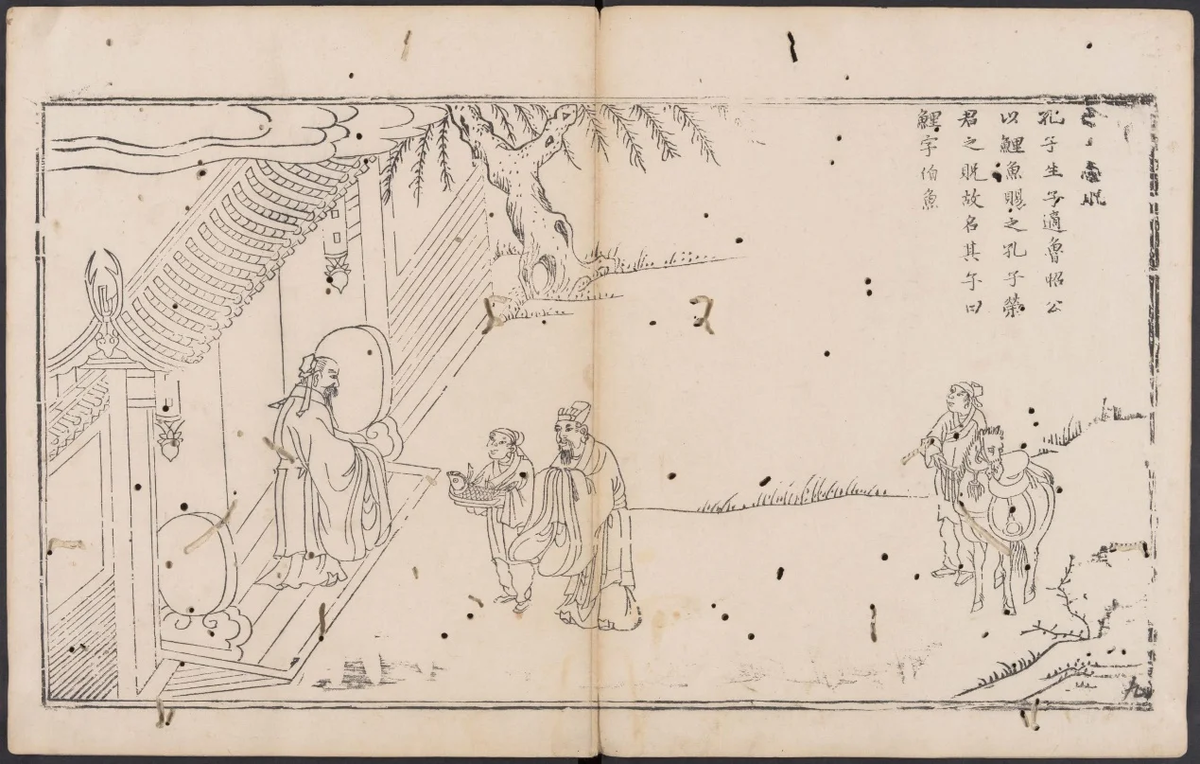 貺
孔子生子適魯昭公
以鯉魚賜之孔子榮
君之貺故名其子曰
鯉字伯魚
九